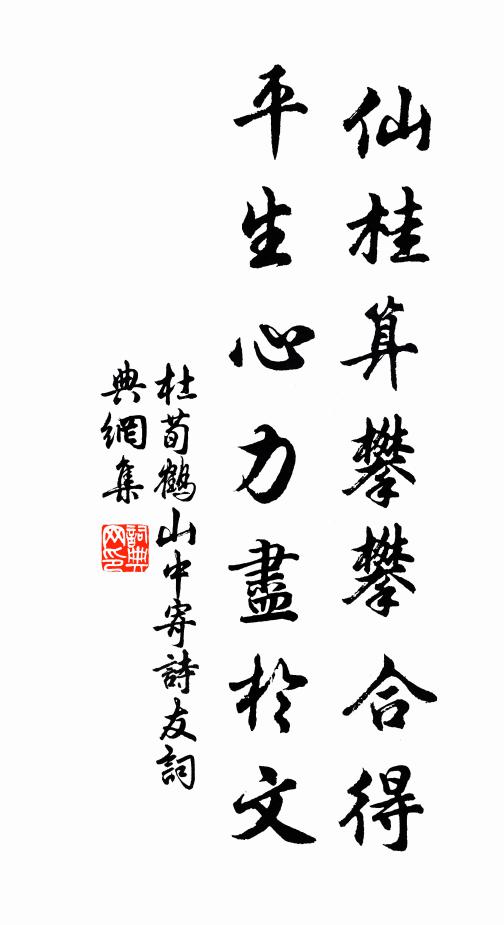 仙桂算攀攀合得
平生心力盡於文
杜荀鶴山中寄詩友詞
典網集
詞典
网印